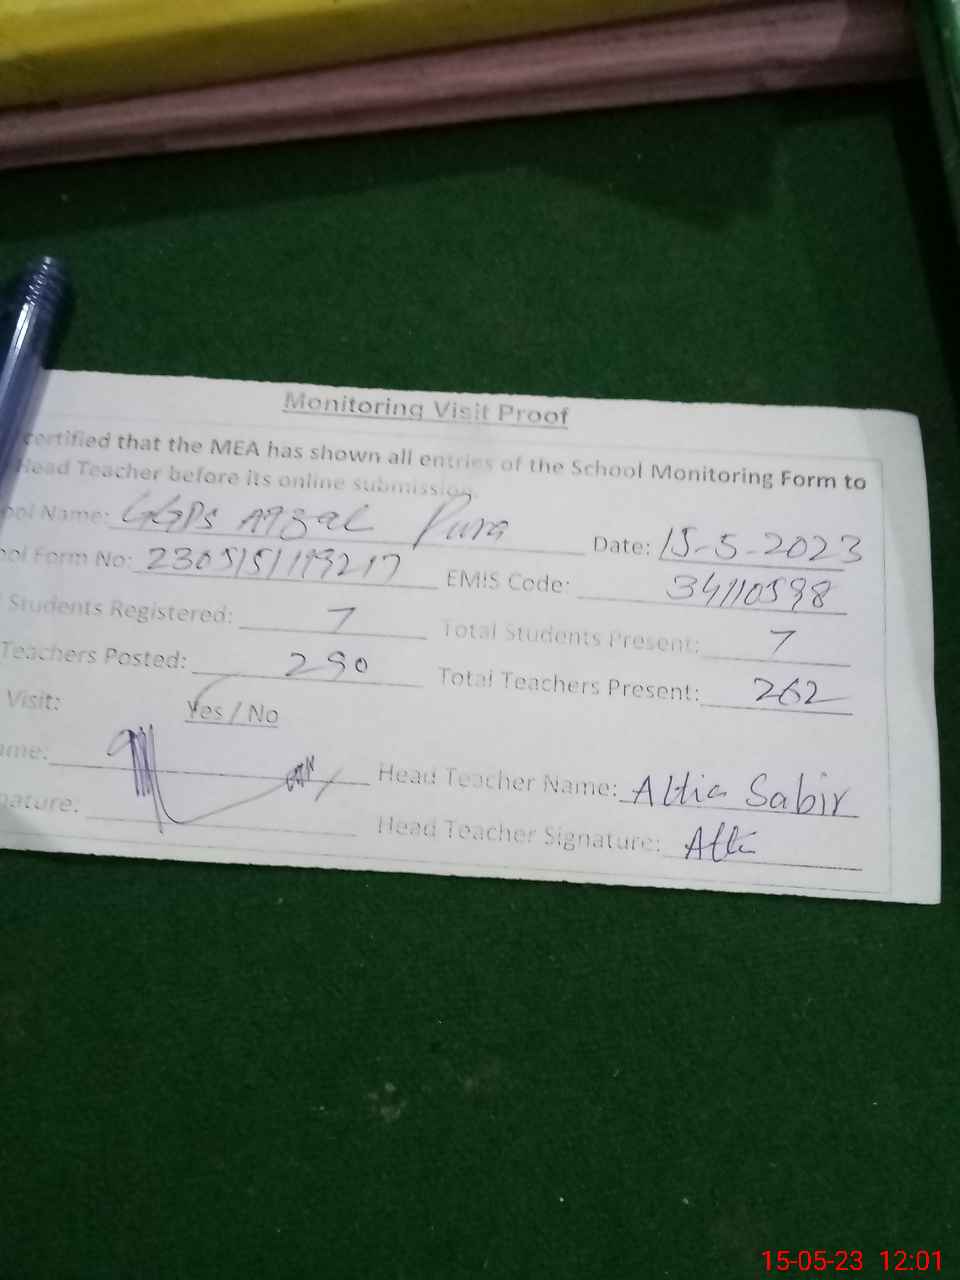 Monitoring Visit Proof
certified that the MEA has shown all entries of the School Monitoring Form to
Head Teacher before its online submission.
ool Name: GGPS Afzal Pura Date: 15-5-2023
ool Form No: EMIS Code: 34110598
Students Registered: 7 Total Students Present: 7
Teachers Posted: 290 Total Teachers Present: 262
Visit: Yes / No
ame: Head Teacher Name: Attia Sabir
nature: Head Teacher Signature: Atti
15-05-23 12:01